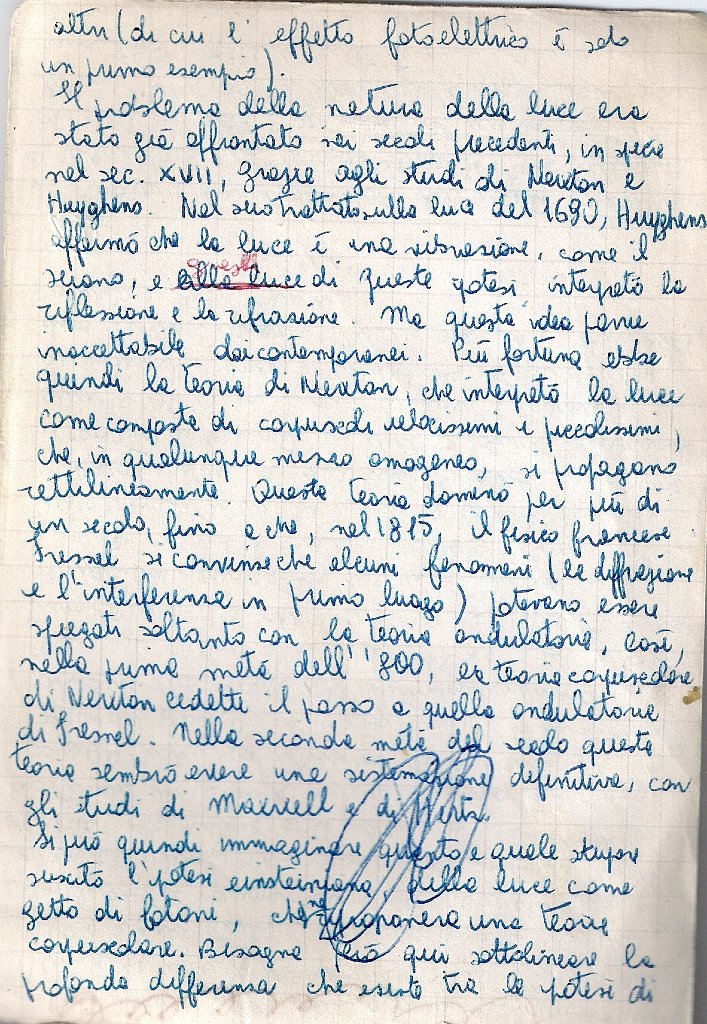 altri (di cui l'effetto fotoelettrico è solo
un primo esempio).
Il problema della natura della luce era
stato già affrontato nei secoli precedenti, in specie
nel sec. XVII, grazie agli studi di Newton e
Huyghens. Nel suo trattato sulla luce del 1690, Huyghens
affermò che la luce è una vibrazione, come il
suono, e alla luce di queste ipotesi interpretò la
riflessione e la rifrazione. Ma questa idea parve
inaccettabile dai contemporanei. Più fortuna ebbe
quindi la teoria di Newton, che interpretò la luce
come composta di corpuscoli velocissimi e piccolissimi,
che, in qualunque mezzo omogeneo, si propagano
rettilineamente. Questa teoria dominò per più di
un secolo, fino a che, nel 1815, il fisico francese
Fresnel si convinse che alcuni fenomeni (la diffrazione
e l'interferenza in primo luogo) potevano essere
spiegati soltanto con la teoria ondulatoria. Così,
nella prima metà dell' '800, la teoria corpuscolare
di Newton cedette il passo a quella ondulatoria
di Fresnel. Nella seconda metà del secolo questa
teoria sembrò avere una sistemazione definitiva, con
gli studi di Maxwell e di Hertz.
Si può quindi immaginare quanto e quale stupore
suscitò l'ipotesi einsteiniana, della luce come
getto di fotoni, che riproponeva una teoria
corpuscolare. Bisogna però qui sottolineare la
profonda differenza che esiste tra le ipotesi di